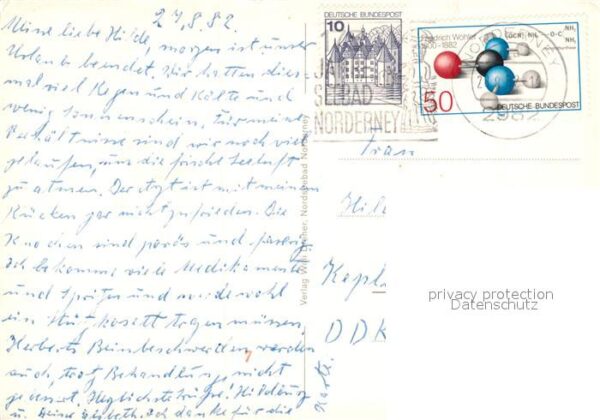 27.8.82.
Meine liebe Hilde, morgen ist unser
Urlaub beendet. Wir hatten dies-
mal viel Regen und Kälte und
wenig Sonnenschein, für meine
Verhältnisse sind wir noch viel
gelaufen, um die frische Seeluft
zu atmen. Der Arzt ist mit meinem
Rücken gar nicht zufrieden. Die
Knochen sind porös und
ich bekomme viele Medikamente
und Spritzen und werde wohl
ein Stützkosett tragen müssen,
Herberts Beinbeschwerden werden
auch, trotz Behandlung nicht
gebessert. Herzlichste Grüße! Hildburg
u. Deine Elisabeth. Ich danke für die
Karte.
Verlag Willi Heiner, Nordseebad Norderney
DEUTSCHE BUNDESPOST
10
SEEBAD
NORDERNEY
Friedrich Wöhler
1800-1882
50
DEUTSCHE BUNDESPOST
NORDERNEY
2982
Frau
Hil
Kepl
DDR
privacy protection
Datenschutz